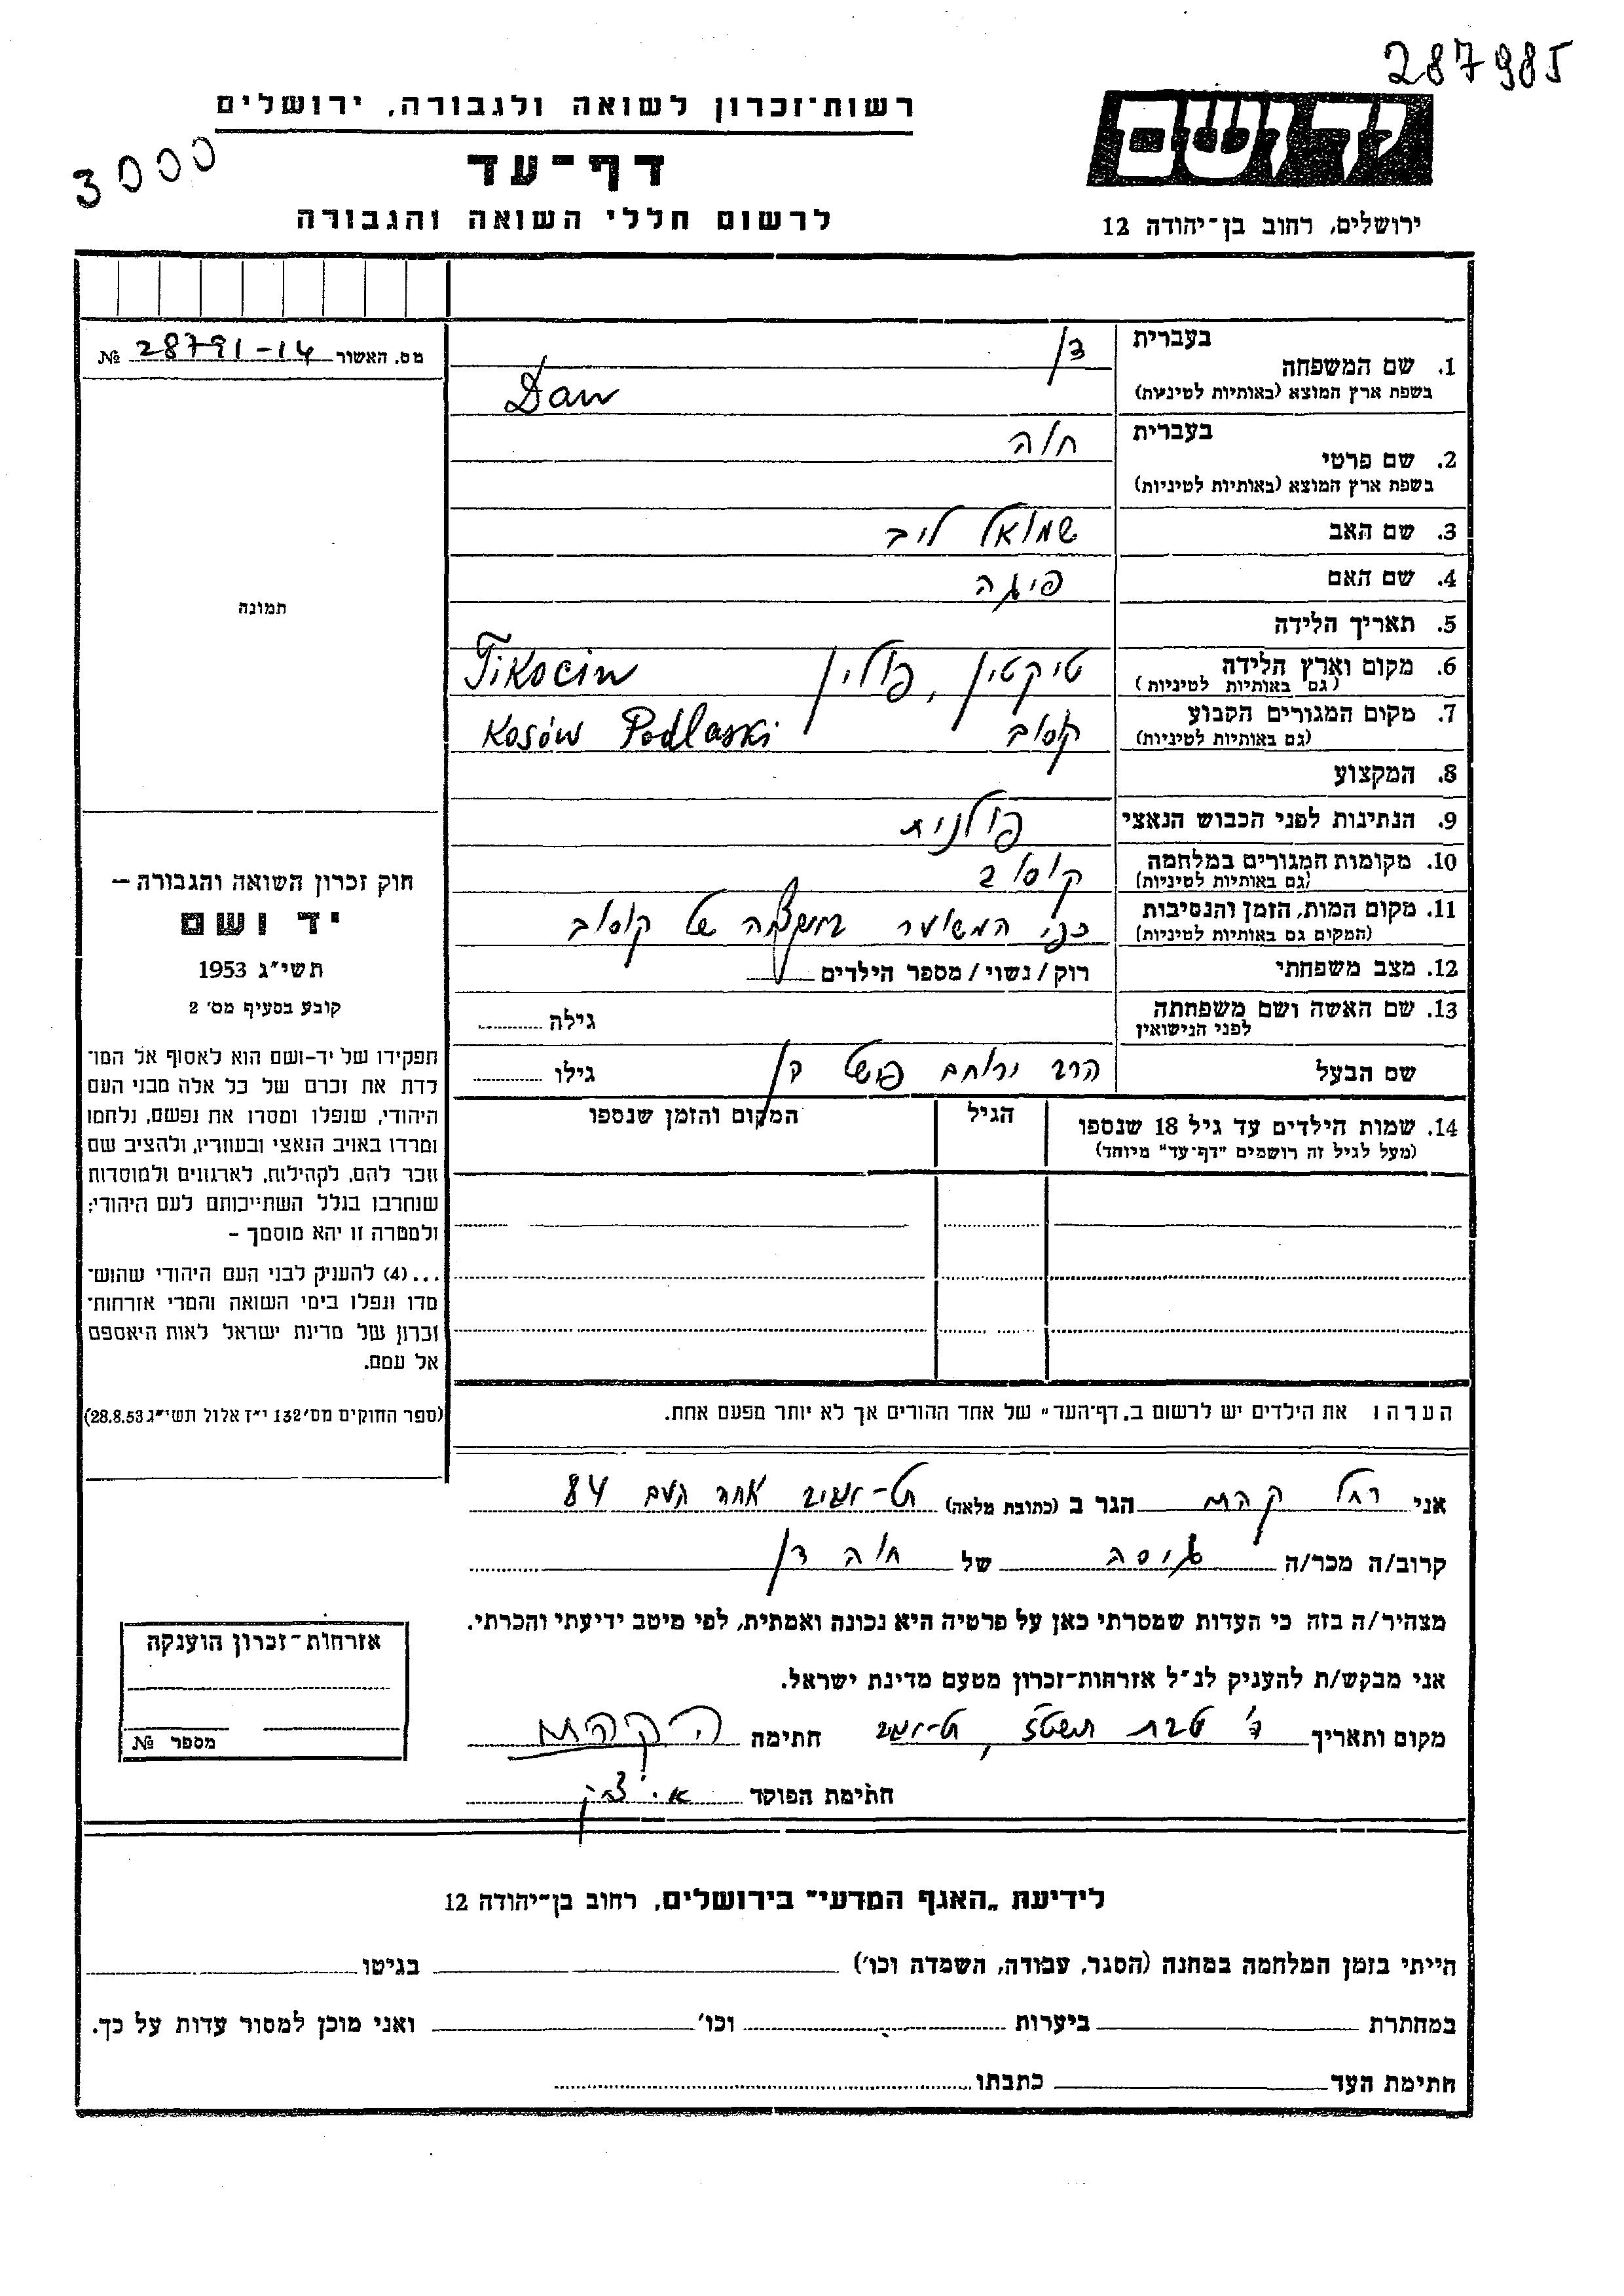 287985
יד ושם
ירושלים, רחוב בן־יהודה 12
רשות־זכרון לשואה ולגבורה, ירושלים
דף־עד
לרשום חללי השואה והגבורה
3000
מס. האשור 28791-14 №
תמונה
חוק זכרון השואה והגבורה –
יד ושם
תשי״ג 1953
קובע בסעיף מס׳ 2
תפקידו של יד-ושם הוא לאסוף אל המו־
לדת את זכרם של כל אלה מבני העם
היהודי, שנפלו ומסרו את נפשם, נלחמו
ומרדו באויב הנאצי ובעוזריו, ולהציב שם
וזכר להם, לקהילות, לארגונים ולמוסדות
שנחרבו בגלל השתייכותם לעם היהודי;
ולמטרה זו יהא מוסמך –
...(4) להעניק לבני העם היהודי שהוש־
מדו ונפלו בימי השואה והמרי אזרחות־
זכרון של מדינת ישראל לאות היאספם
אל עמם.
(ספר החוקים מס׳ 132 י״ז אלול תשי״ג 28.8.53)
בעברית
1. שם המשפחה דן
בשפת ארץ המוצא (באותיות לטיניות) Dan
בעברית
2. שם פרטי חוה
בשפת ארץ המוצא (באותיות לטיניות)
3. שם האב שמואל ליב
4. שם האם פיגה
5. תאריך הלידה
6. מקום וארץ הלידה טיקטין, פולין Tikocin
(גם באותיות לטיניות)
7. מקום המגורים הקבוע קוסוב Kosów Podlaski
(גם באותיות לטיניות)
8. המקצוע
9. הנתינות לפני הכבוש הנאצי פולנית
10. מקומות המגורים במלחמה קוסוב
(גם באותיות לטיניות)
11. מקום המות, הזמן והנסיבות כפי המשוער של קוסוב
(המקום גם באותיות לטיניות)
12. מצב משפחתי רוק / נשוי / מספר הילדים
13. שם האשה ושם משפחתה גילה
לפני הנישואין
שם הבעל הרב ירוחם פישל דן גילו
14. שמות הילדים עד גיל 18 שנספו הגיל המקום והזמן שנספו
(מעל לגיל זה רושמים "דף־עד" מיוחד)
הערה: את הילדים יש לרשום ב„דף־העד" של אחד ההורים אך לא יותר מפעם אחת.
אני רחל הגר ב (כתובת מלאה) תל-אביב אחד העם 84
קרוב/ה מכר/ה גיסה של חוה דן
מצהיר/ה בזה כי העדות שמסרתי כאן על פרטיה היא נכונה ואמתית, לפי מיטב ידיעתי והכרתי.
אני מבקש/ת להעניק לנ״ל אזרחות-זכרון מטעם מדינת ישראל.
מקום ותאריך ד׳ טבת תשט״ז, תל-אביב חתימה
חתימת הפוקד
אזרחות-זכרון הוענקה
מספר №
לידיעת „האגף המדעי" בירושלים, רחוב בן-יהודה 12
הייתי בזמן המלחמה במחנה (הסגר, עבודה, השמדה וכו׳) בגיטו
במחתרת ביערות וכו׳ ואני מוכן למסור עדות על כך.
חתימת העד כתבתו